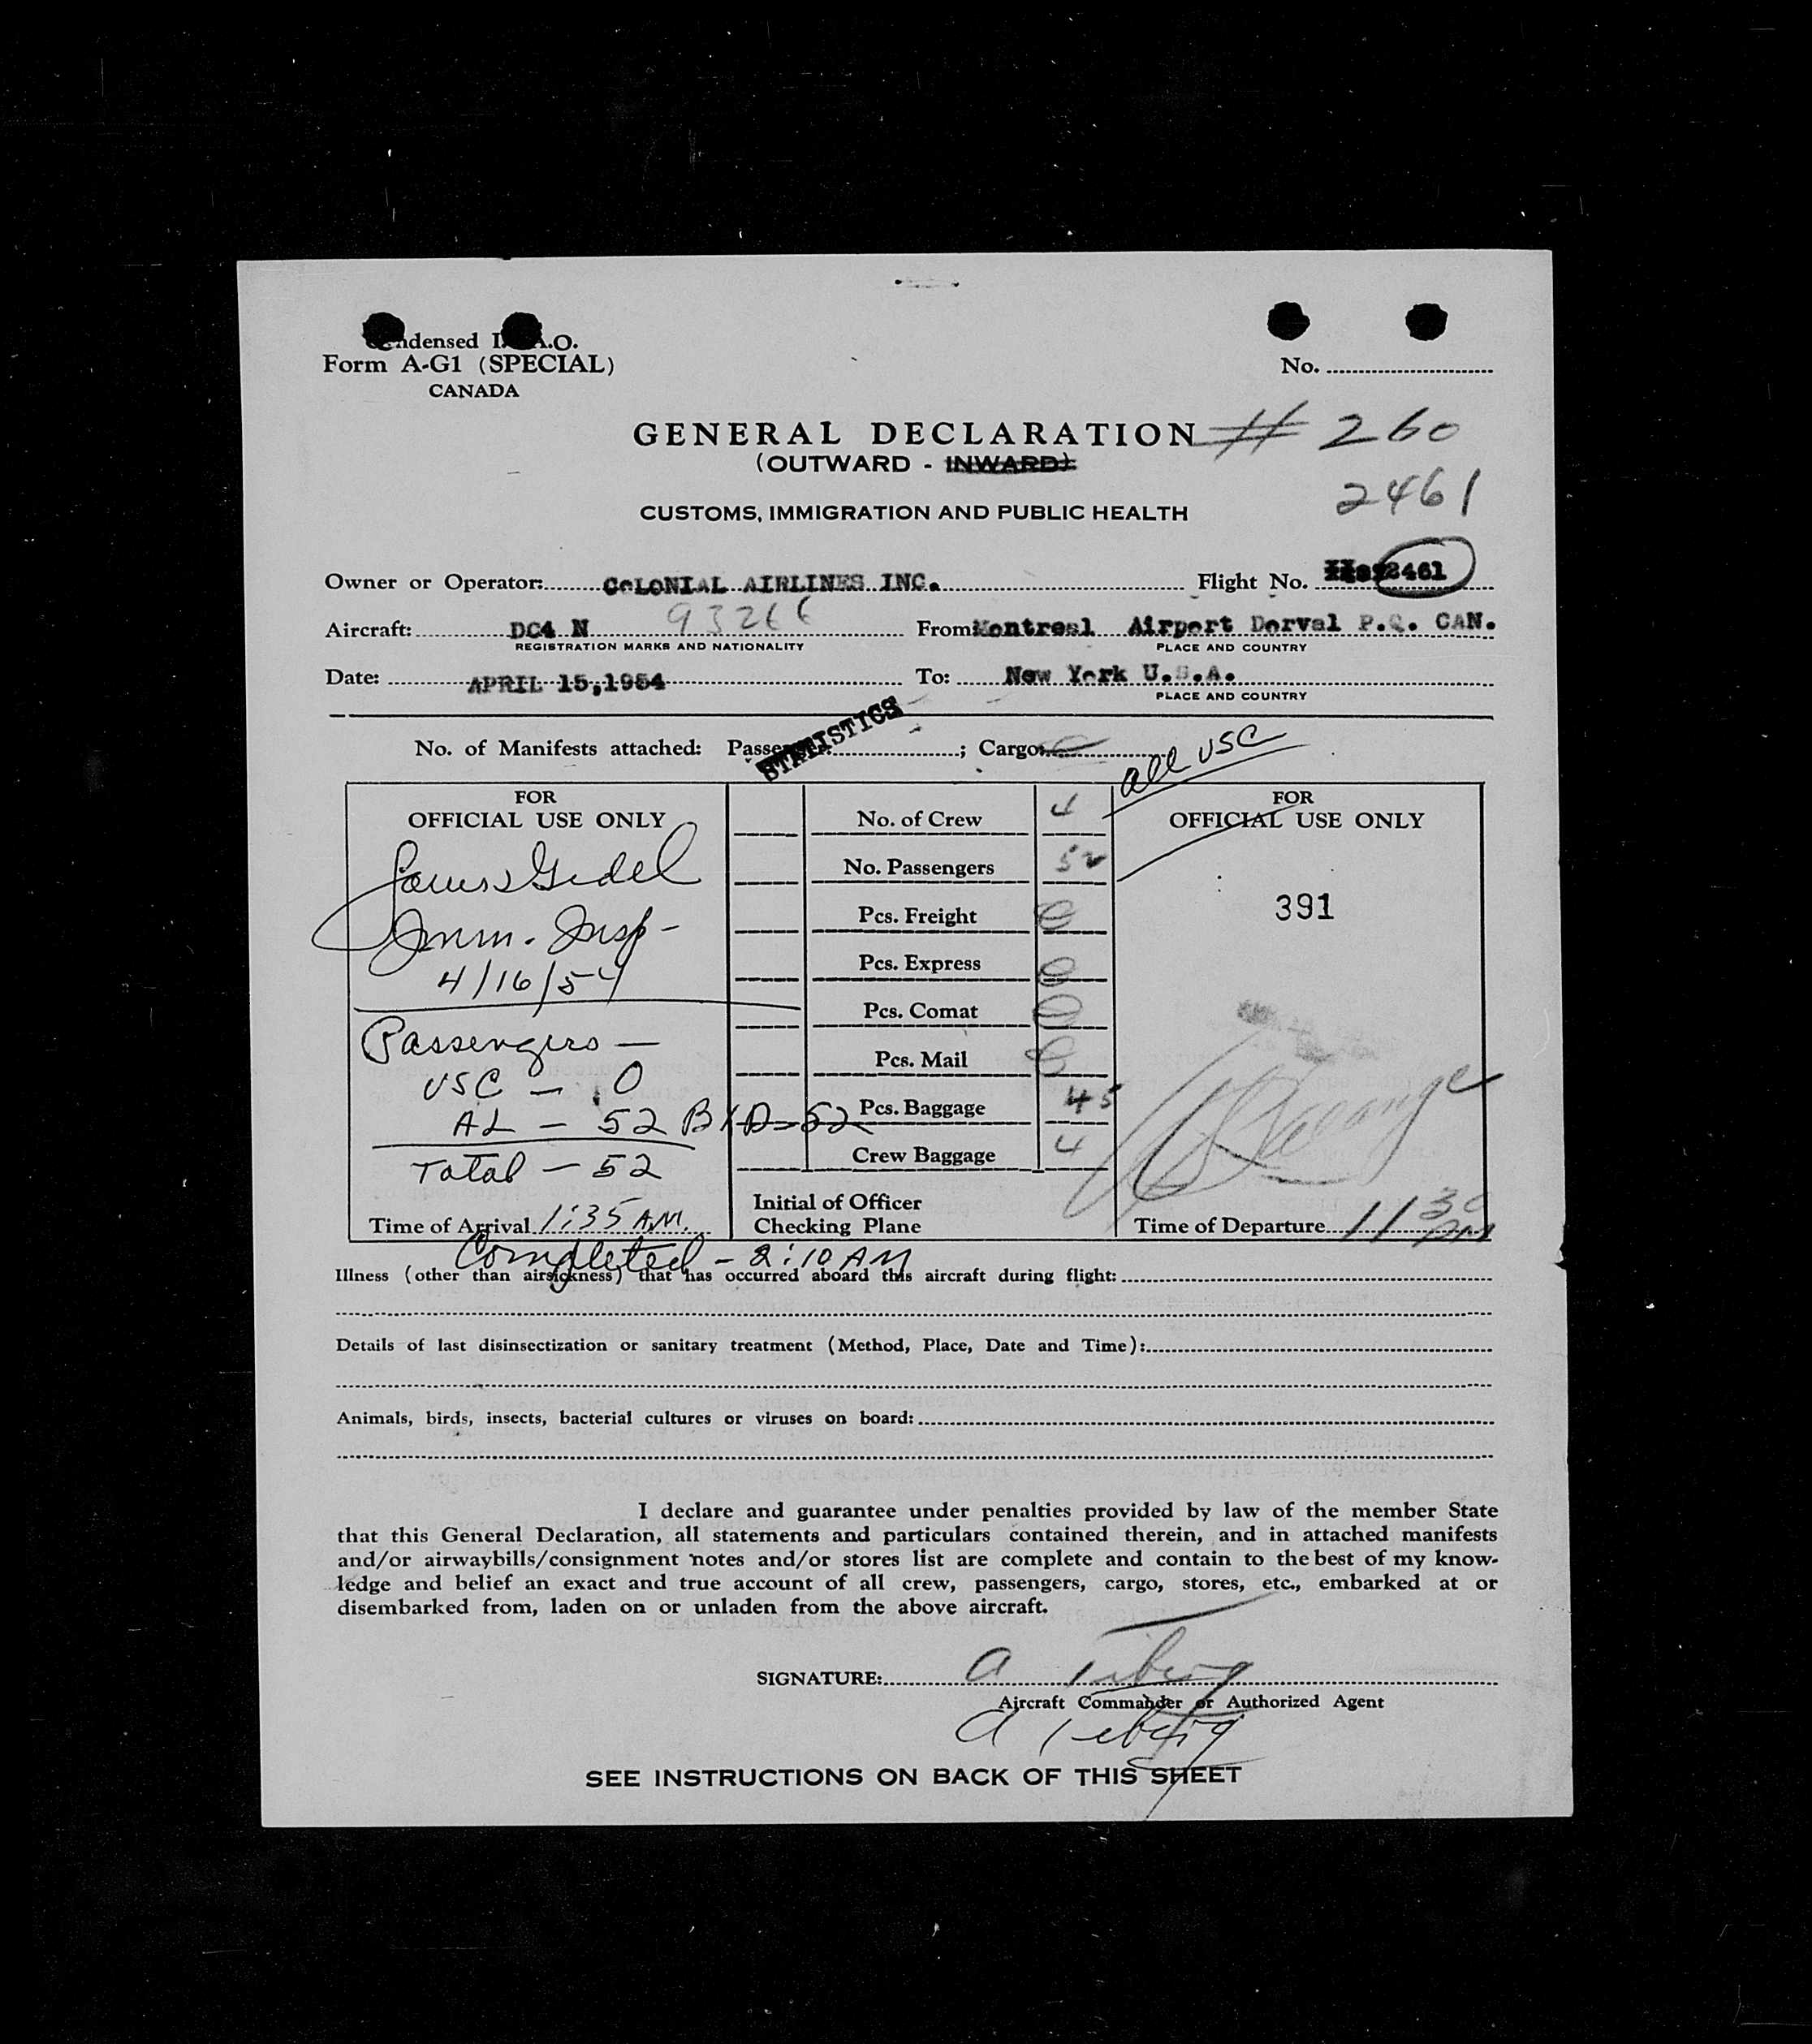 Condensed I.C.A.O.
Form A-G1 (SPECIAL)
CANADA
No.
GENERAL DECLARATION # 260
(OUTWARD - INWARD)
2461
CUSTOMS, IMMIGRATION AND PUBLIC HEALTH
Owner or Operator: COLONIAL AIRLINES INC. Flight No. 2461
Aircraft: DC4 N 93266 From Montreal Airport Dorval P.Q. CAN.
REGISTRATION MARKS AND NATIONALITY PLACE AND COUNTRY
Date: APRIL 15,1954 To: New York U.S.A.
PLACE AND COUNTRY
STATISTICS
No. of Manifests attached: Passenger ; Cargo:
all USC
FOR OFFICIAL USE ONLY
Imm. Insp-
4/16/54
Passengers —
USC — 0
AL — 52 B/D-52
Total — 52
Time of Arrival 1:35 A.M.
Completed - 2:10 AM
No. of Crew 4
No. Passengers 52
Pcs. Freight
Pcs. Express
Pcs. Comat
Pcs. Mail
Pcs. Baggage 45
Crew Baggage 4
Initial of Officer
Checking Plane
FOR OFFICIAL USE ONLY
391
Time of Departure 11 30 PM
Illness (other than airsickness) that has occurred aboard this aircraft during flight:
Details of last disinsectization or sanitary treatment (Method, Place, Date and Time):
Animals, birds, insects, bacterial cultures or viruses on board:
I declare and guarantee under penalties provided by law of the member State
that this General Declaration, all statements and particulars contained therein, and in attached manifests
and/or airwaybills/consignment notes and/or stores list are complete and contain to the best of my know-
ledge and belief an exact and true account of all crew, passengers, cargo, stores, etc., embarked at or
disembarked from, laden on or unladen from the above aircraft.
SIGNATURE: A
Aircraft Commander or Authorized Agent
A
SEE INSTRUCTIONS ON BACK OF THIS SHEET